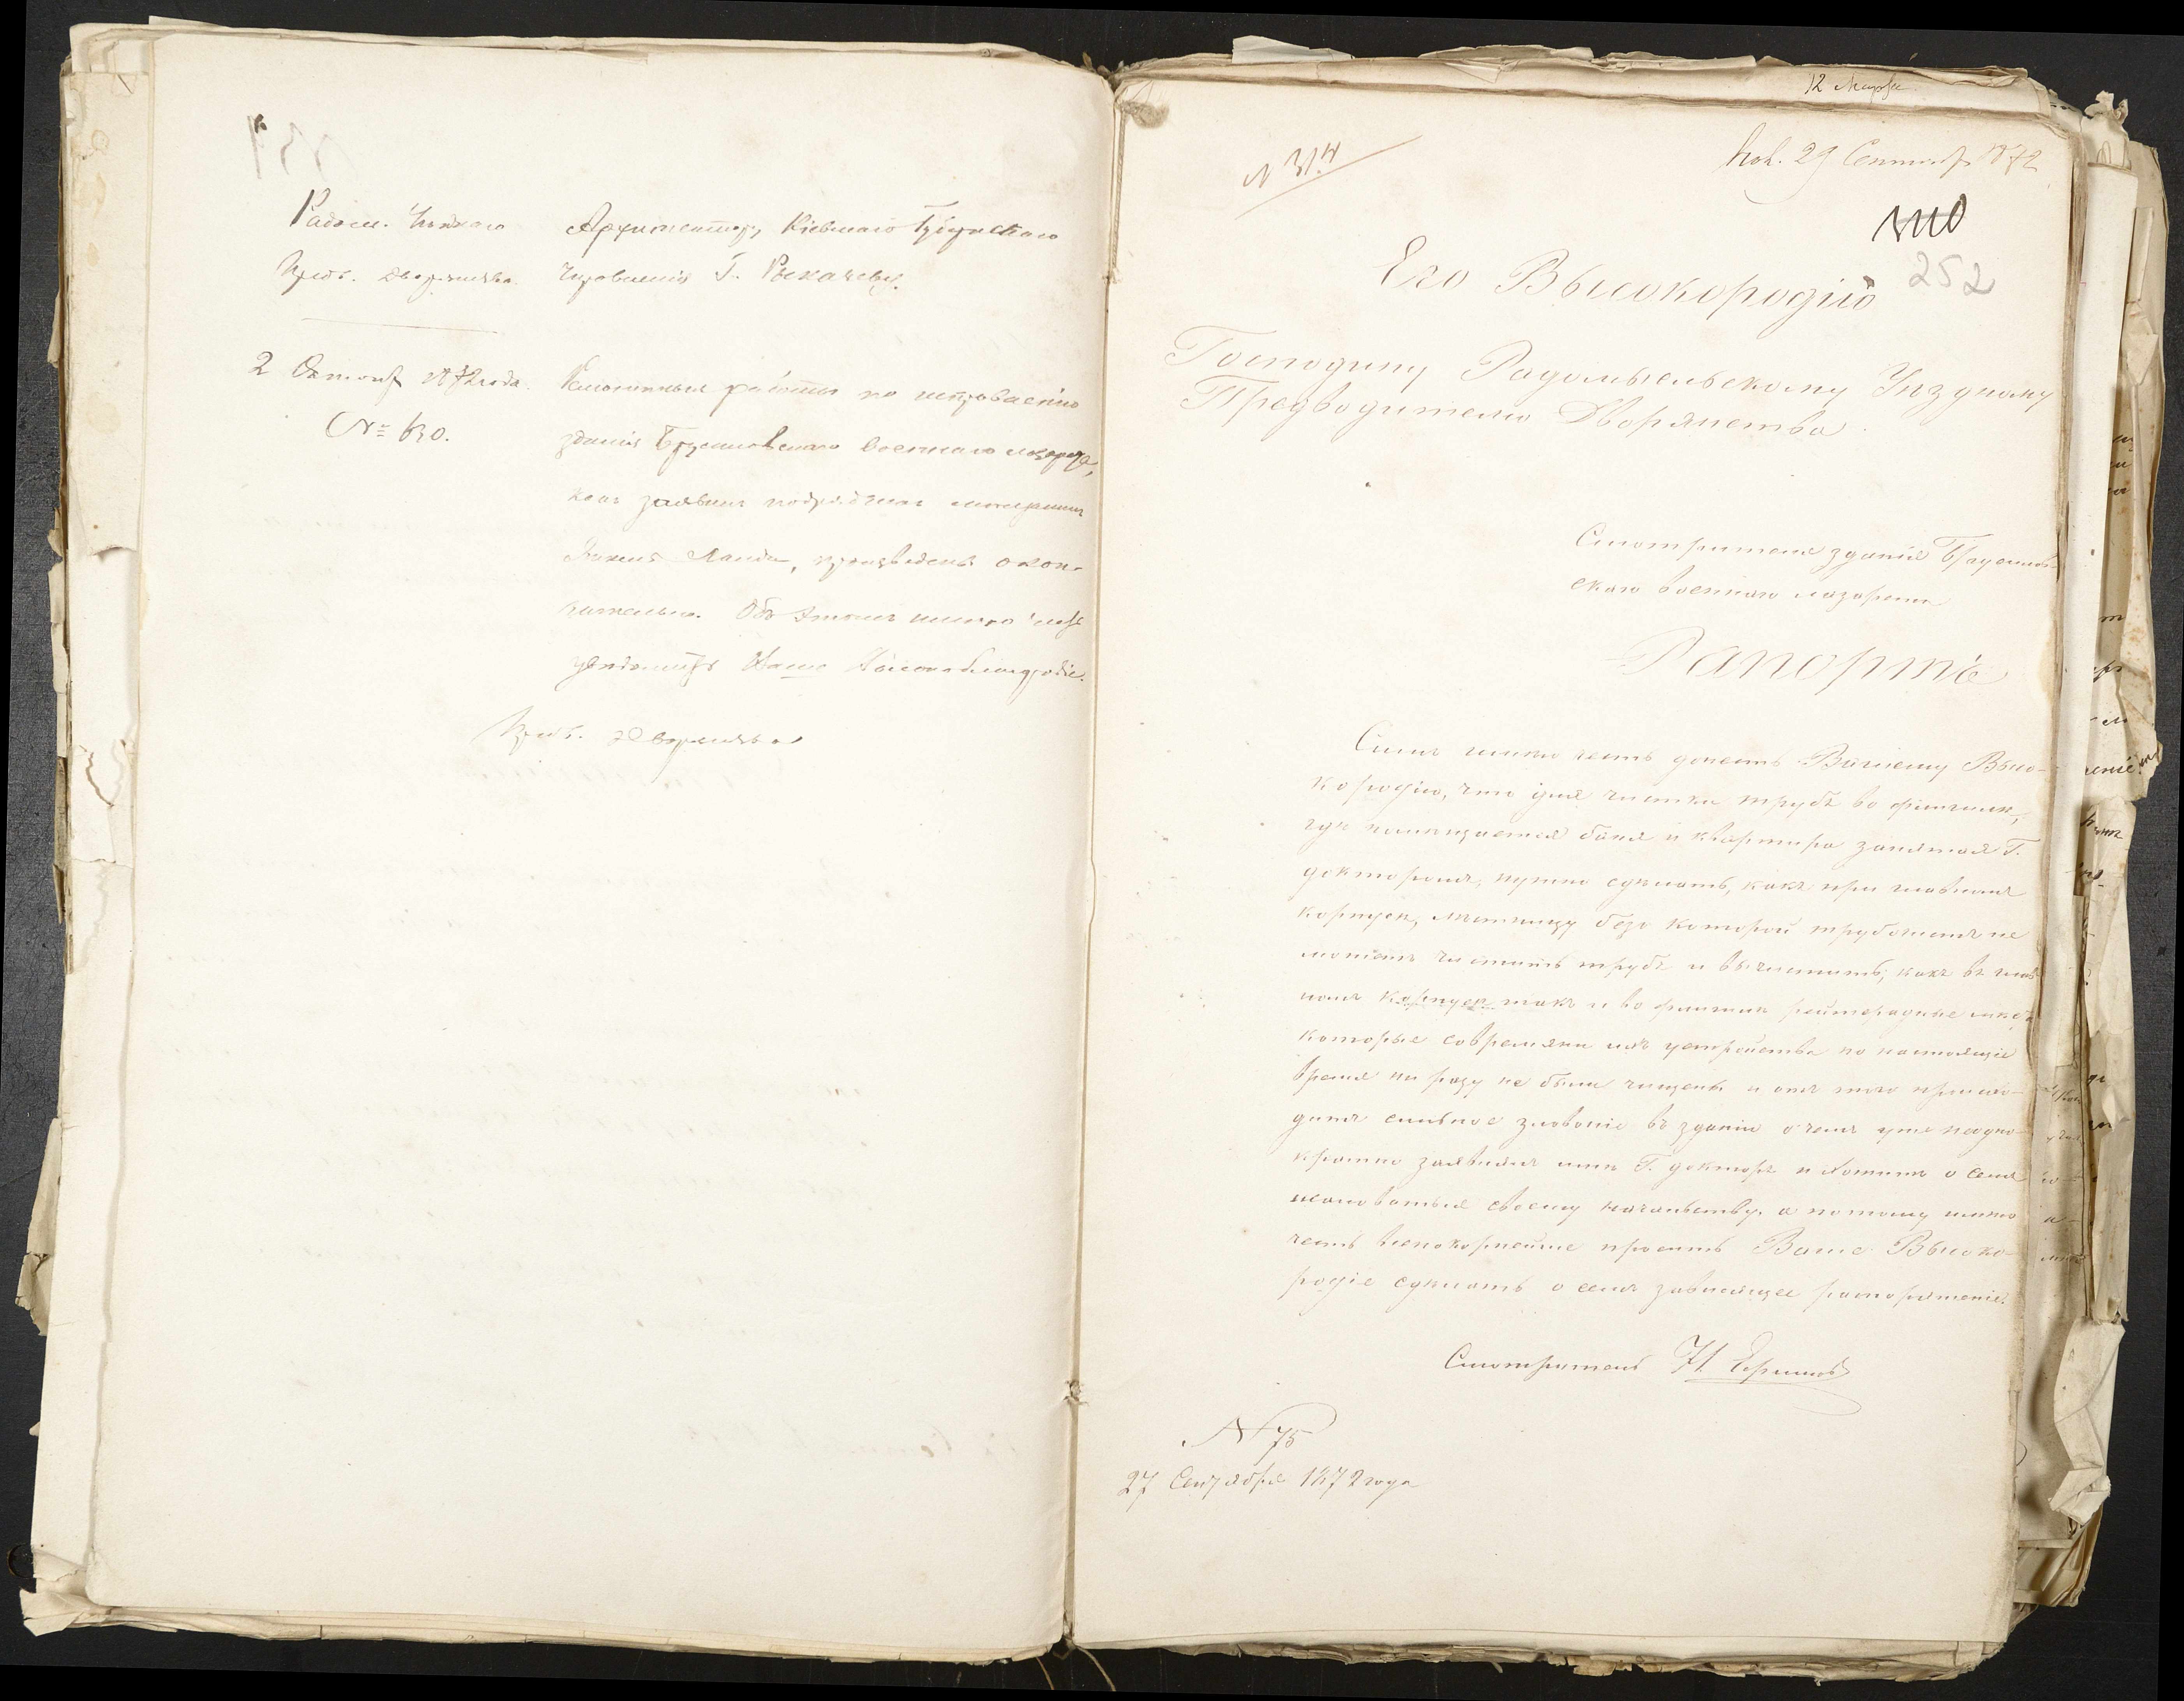 Радом. Уѣзднаго
Пред. Дворянства.
2 Октяб 1872 года.
№ 630.
Архитектору Кіевскаго Губернскаго
Правленія Г. Рыкачеву.
Ремонтныя работы по исправленію
зданія Брусиловскаго военнаго лазарета,
какъ заявилъ подрядчикъ
Ланда, произведены окон-
чательно. Объ этомъ имѣю честь
увѣдомить Ваше Высокоблагородіе.
Предв. Дворянства
12 Марта
№ 314
Пол. 29 Сентяб 1872
252
Его Высокородію
Господину Радомысльскому Уѣздному
Предводителю Дворянства.
Смотрителя зданія Брусилов-
скаго военнаго лазарета
Рапортъ
Симъ имѣю честь донесть Вашему Высо-
кородію, что для чистки трубъ во флигилѣ,
гдѣ помѣщается баня и квартира занятая Г.
докторомъ, нужно сдѣлать, какъ при главномъ
корпусѣ, лѣстницу безъ которой трубочистъ не
можетъ чистить трубъ и вычистить, какъ въ глав-
номъ корпусѣ такъ и во флигилѣ реитерадные мѣста
которые современи ихъ устройства по настоящіе
время ни разу не были чищены и отъ того происхо-
дитъ сильное зловоніе въ зданіи о чемъ уже неодно-
кратно заявлялъ мнѣ Г. докторъ и хотитъ о семъ
жаловаться своему начальству, а потому имѣю
честь всепокорнейше просить Ваше Высоко-
родіе сдѣлать о семъ зависящее распоряженіе.
Смотритель Н.
№ 75
27 Сентября 1872 года